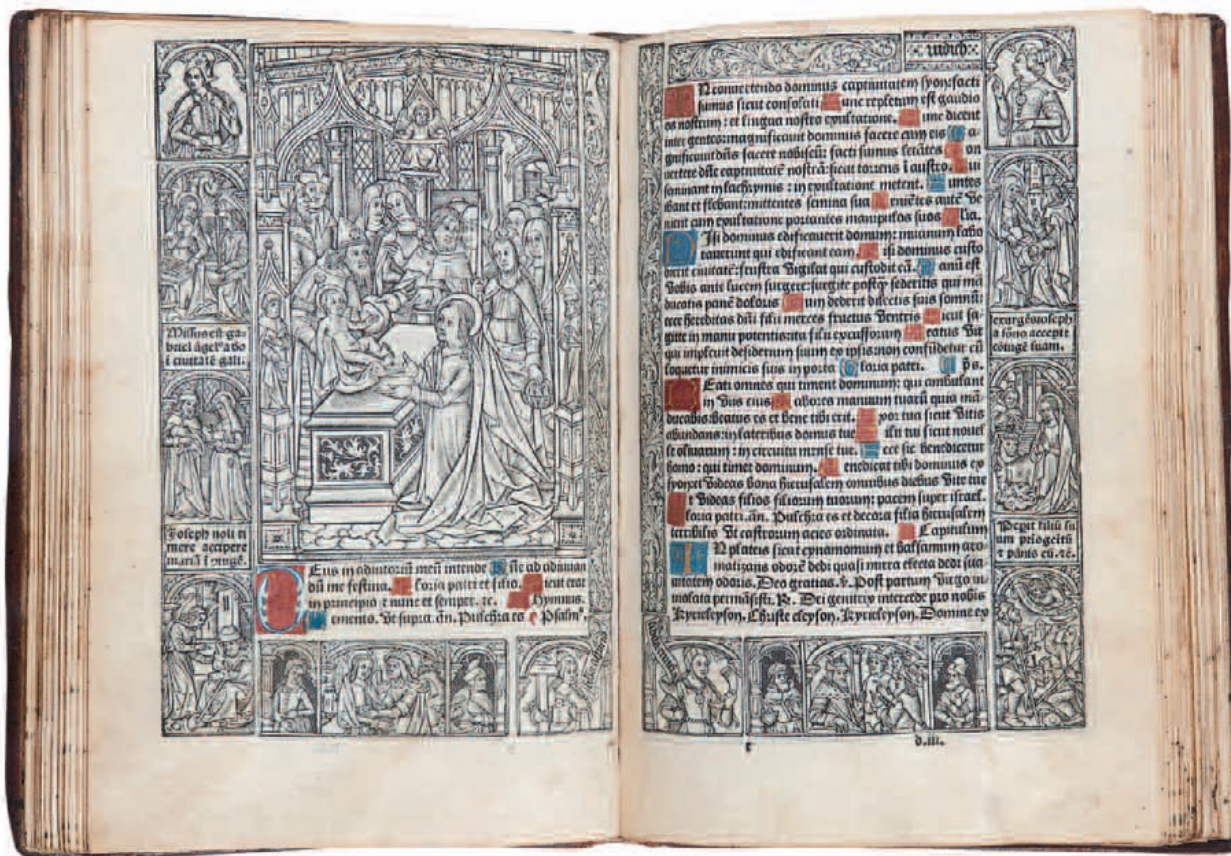 Missus est ga=
briel ãgel⁹ a deo
i ciuitatẽ gali.
Joseph noli ti
mere accipere
mariã cõiugẽ.
Deus in adiutoriũ meũ intende Dñe ad adiuuan
dũ me festina. Gloria patri et filio. Sicut erat
in principio ⁊ nunc et semper. ꝛc. Hymnus.
Memento. Vt supra. añ. Pulchra es Psalm⁹.
iudich
IN conuertendo dominus captiuitatem syon: facti
sumus sicut consolati Tunc repletum est gaudio
os nostrum: et lingua nostra exultatione. Tunc dicent
inter gentes: magnificauit dominus facere cum eis Ma
gnificauit dñs facere nobiscũ: facti sumus letãtes Con
uertere dñe captiuitatẽ nostrã: sicut torrens ĩ austro. Qui
seminant in lachrymis: in exultatione metent. Euntes
ibant et flebant: mittentes semina sua Veniẽtes autẽ ve
nient cum exultatione portantes manipulos suos Gloria.
NIsi dominus edificauerit domum: inuanum labo
rauerunt qui edificant eam. Nisi dominus custo
dierit ciuitatẽ: frustra vigilat qui custodit eã. Vanũ est
vobis ante lucem surgere: surgite postq̃ sederitis qui mã
ducatis panẽ doloris Cum dederit dilectis suis somnũ:
ecce hereditas dñi filii merces fructus ventris Sicut sa
gitte in manu potentis: ita filii excussorum Beatus vir
qui impleuit desiderium suum ex ipsis: non confũdetur cũ
loquetur inimicis suis in porta Gloria patri. ps.
BEati omnes qui timent dominum: qui ambulant
in viis eius Labores manuum tuarũ quia mã
ducabis: beatus es et bene tibi erit. Vxor tua sicut vitis
abundans: in lateribus domus tue Filii tui sicut nouel
le oliuarum: in circuitu mense tue. Ecce sic benedicetur
homo: qui timet dominum. Benedicat tibi dominus ex
syon: et videas bona hierusalem omnibus diebus vite tue
Et videas filios filiorum tuorum: pacem super israel.
Gloria patri. añ. Pulchra es et decora filia hierusalem
terribilis vt castrorum acies ordinata. Capitulum
IN plateis sicut cynamomum et balsamum aro
matizans odorẽ dedi quasi mirra electa dedi sua
uitatem odoris. Deo gratias. ℣. Post partum virgo in
uiolata permãsisti. ℟. Dei genitrix intercede pro nobis
Kyrieleyson. Christe eleyson. Kyrieleyson. Domine ex
exurgẽs ioseph
a sõno accepit
cõiugẽ suam.
Peperit filiũ su
um primogeitũ
⁊ pãnis eũ. ꝛc.
d.iii.